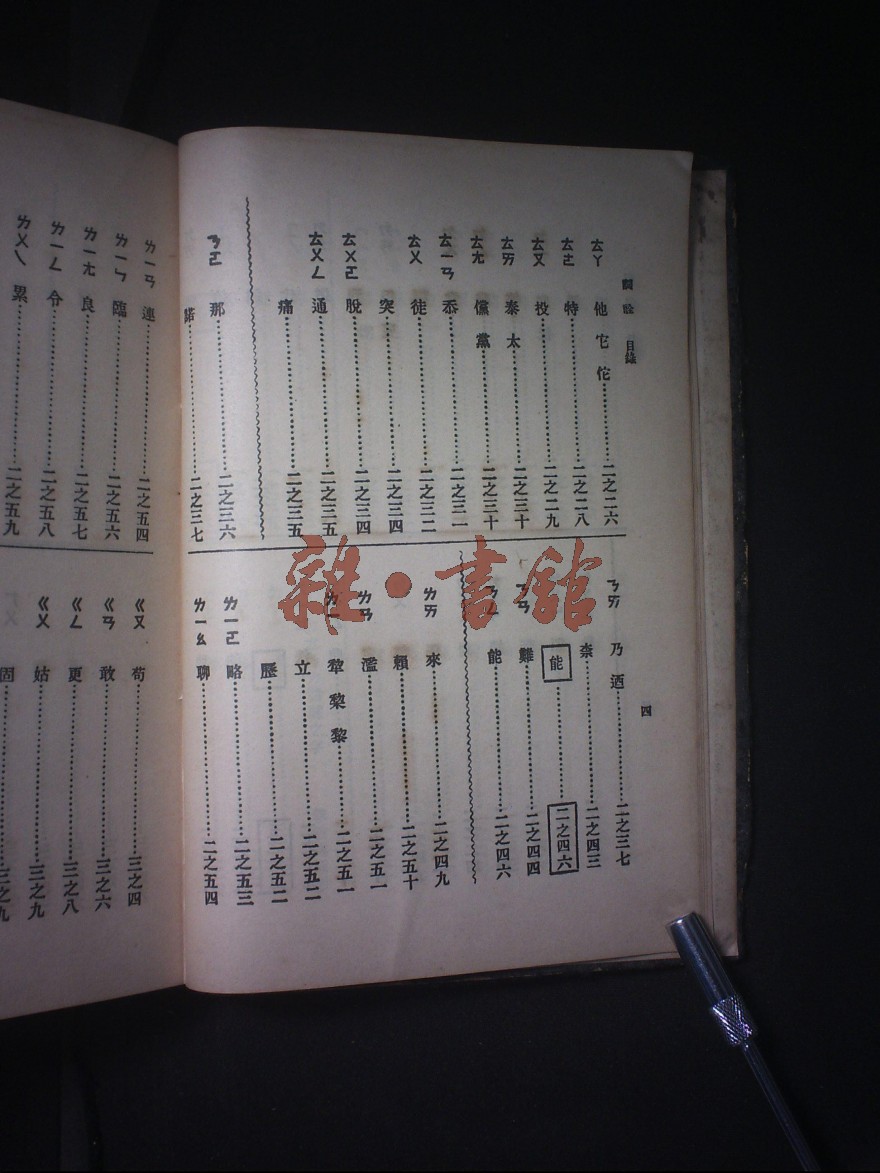 詞詮 目錄
四
ㄊㄚ 他 它 佗……二之二六
ㄊㄜ 特……二之二八
ㄊㄡ 投……二之二九
ㄊㄞ 泰 太……二之三十
ㄊㄤ 儻 黨……二之三十
ㄊㄧㄢ 忝……二之三一
ㄊㄨ 徒……二之三二
突……二之三四
ㄊㄨㄛ 脫……二之三四
ㄊㄨㄥ 通……二之三五
痛……二之三五
ㄋㄛ 那……二之三六
諾……二之三七
ㄋㄞ 乃 迺……二之三七
柰……二之四三
能……二之四六
ㄋㄢ 難……二之四四
能……二之四六
ㄌㄞ 來……二之四九
賴……二之五十
ㄌㄢ 濫……二之五一
犂 黎……二之五一
立……二之五二
歷……二之五二
ㄌㄧㄛ 略……二之五三
ㄌㄧㄠ 聊……二之五四
ㄌㄧㄢ 連……二之五四
ㄌㄧㄣ 臨……二之五六
ㄌㄧㄤ 良……二之五七
ㄌㄧㄥ 令……二之五八
累……二之五九
ㄍㄡ 苟……三之四
ㄍㄢ 敢……三之六
ㄍㄥ 更……三之八
ㄍㄨ 姑……三之九
固……三之九
雜·書館